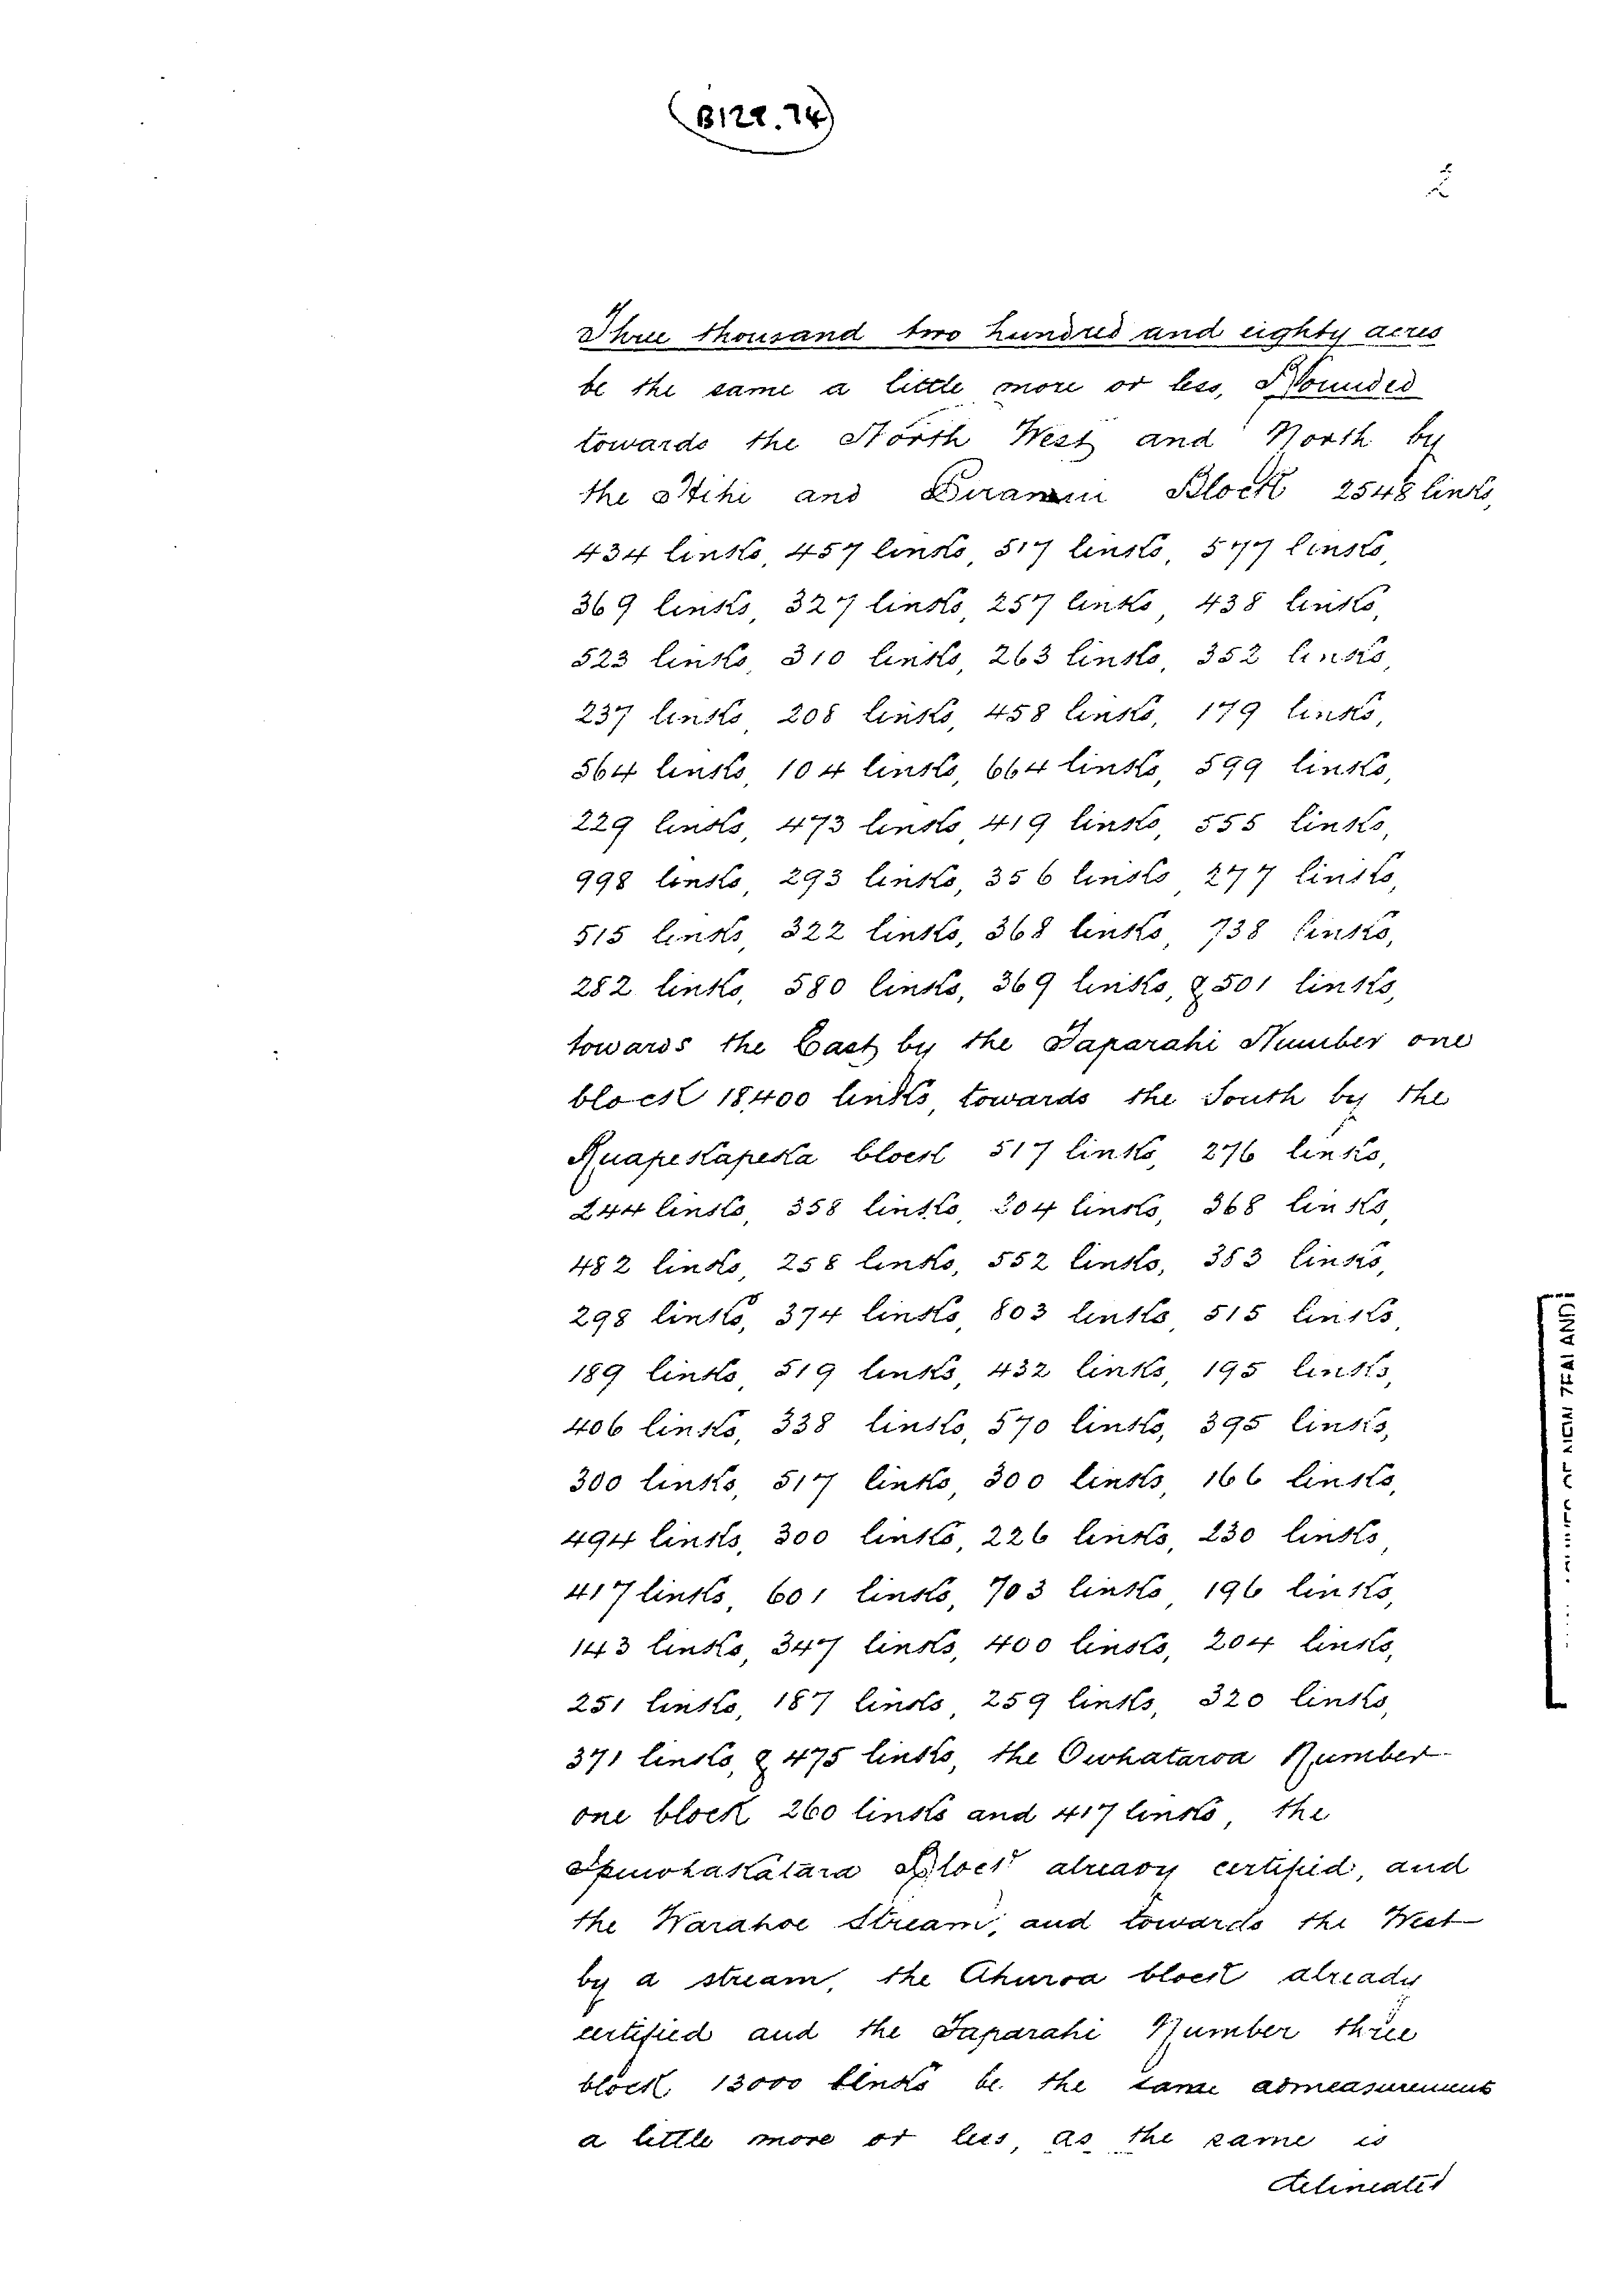 (B122.74)
2
Three thousand two hundred and eighty acres
be the same a little more or less, Bounded
towards the North West and North by
the Hihi and Block 2548 links,
434 links, 457 links, 517 links, 577 links,
369 links, 327 links, 257 links, 438 links,
523 links, 310 links, 263 links, 352 links,
237 links, 208 links, 458 links, 179 links,
564 links, 104 links, 664 links, 599 links,
229 links, 473 links, 419 links, 555 links,
998 links, 293 links, 356 links, 277 links,
515 links, 322 links, 368 links, 738 links,
282 links, 580 links, 369 links, & 501 links,
towards the East by the Taparahi Number one
block 18400 links, towards the South by the
Ruapekapeka block 517 links, 276 links,
244 links, 358 links, 204 links, 368 links,
482 links, 258 links, 552 links, 383 links,
298 links, 374 links, 803 links, 515 links,
189 links, 519 links, 432 links, 195 links,
406 links, 338 links, 570 links, 395 links,
300 links, 517 links, 300 links, 166 links,
494 links, 300 links, 226 links, 230 links,
417 links, 601 links, 703 links, 196 links,
143 links, 347 links, 400 links, 204 links,
251 links, 187 links, 259 links, 320 links,
371 links, & 475 links, the Owhataroa Number
one block 260 links and 417 links, the
Block already certified, and
the Warahoe Stream, and towards the West
by a stream, the Ahuroa block already
certified and the Taparahi Number three
block, 13000 links be the same admeasurement
a little more or less, as the same is
delineated